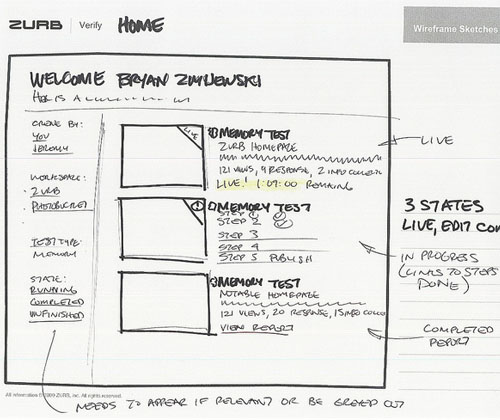 ZURB Verify HOME
Wireframe Sketches
WELCOME BRYAN ZMIJEWSKI
CREATED BY:
YOU
JEREMY
WORKSPACE:
ZURB
PHOTOBUCKET
TEST TYPE:
MEMORY
STATE:
RUNNING
COMPLETED
UNFINISHED
LIVE
MEMORY TEST
ZURB HOMEPAGE
121 VIEWS, 9 RESPONSE, 2 INFO
LIVE! 1:07:00 REMAINING
MEMORY TEST
STEP 1
STEP 2
STEP 3
STEP 4
STEP 5 PUBLISH
MEMORY TEST
NOTABLE HOMEPAGE
121 VIEWS, 20 RESPONSE, 15 INFO
VIEW REPORT
LIVE
3 STATES
LIVE, EDIT
IN PROGRESS
(LINKS TO STEPS
DONE)
COMPLETED
REPORT
All information © 2009 ZURB, Inc. All rights reserved.
NEEDS TO APPEAR IF RELEVANT OR BE GREYED OUT